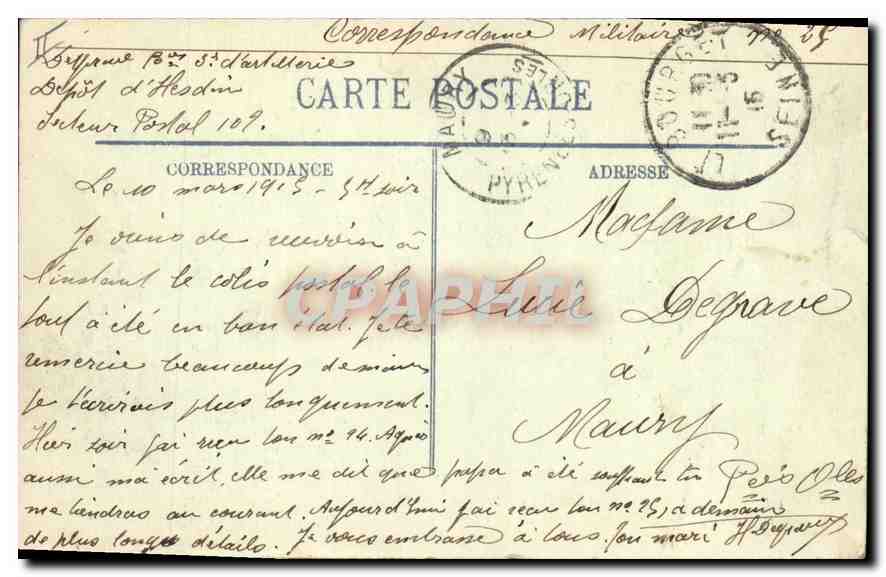 Correspondance Militaire n° 25
Degrave Bier St d'artillerie
Dépôt d'Hesdin
Secteur Postal 109.
CARTE POSTALE
MAURY
PYRENEES
BOURGET
11-3
15
SEINE
CORRESPONDANCE
ADRESSE
Le 10 mars 1915 - 5h soir
Je viens de recevoir à
l'instant le colis postal. le
tout à été en bon état. Je te
remercie beaucoup demain
je t'écrirais plus longuement.
Hier soir j'ai reçu ton n° 24.
aussi m'a écrit, elle me dit que papa à été souffrant tu
me tiendras au courant. Aujourd'hui j'ai reçu ton n° 25, à demain
de plus longs détails. Je vous embrasse à tous. Ton mari HDegrave
Madame
Lucie Degrave
à
Maury
Pées Oles
CPAPHIL